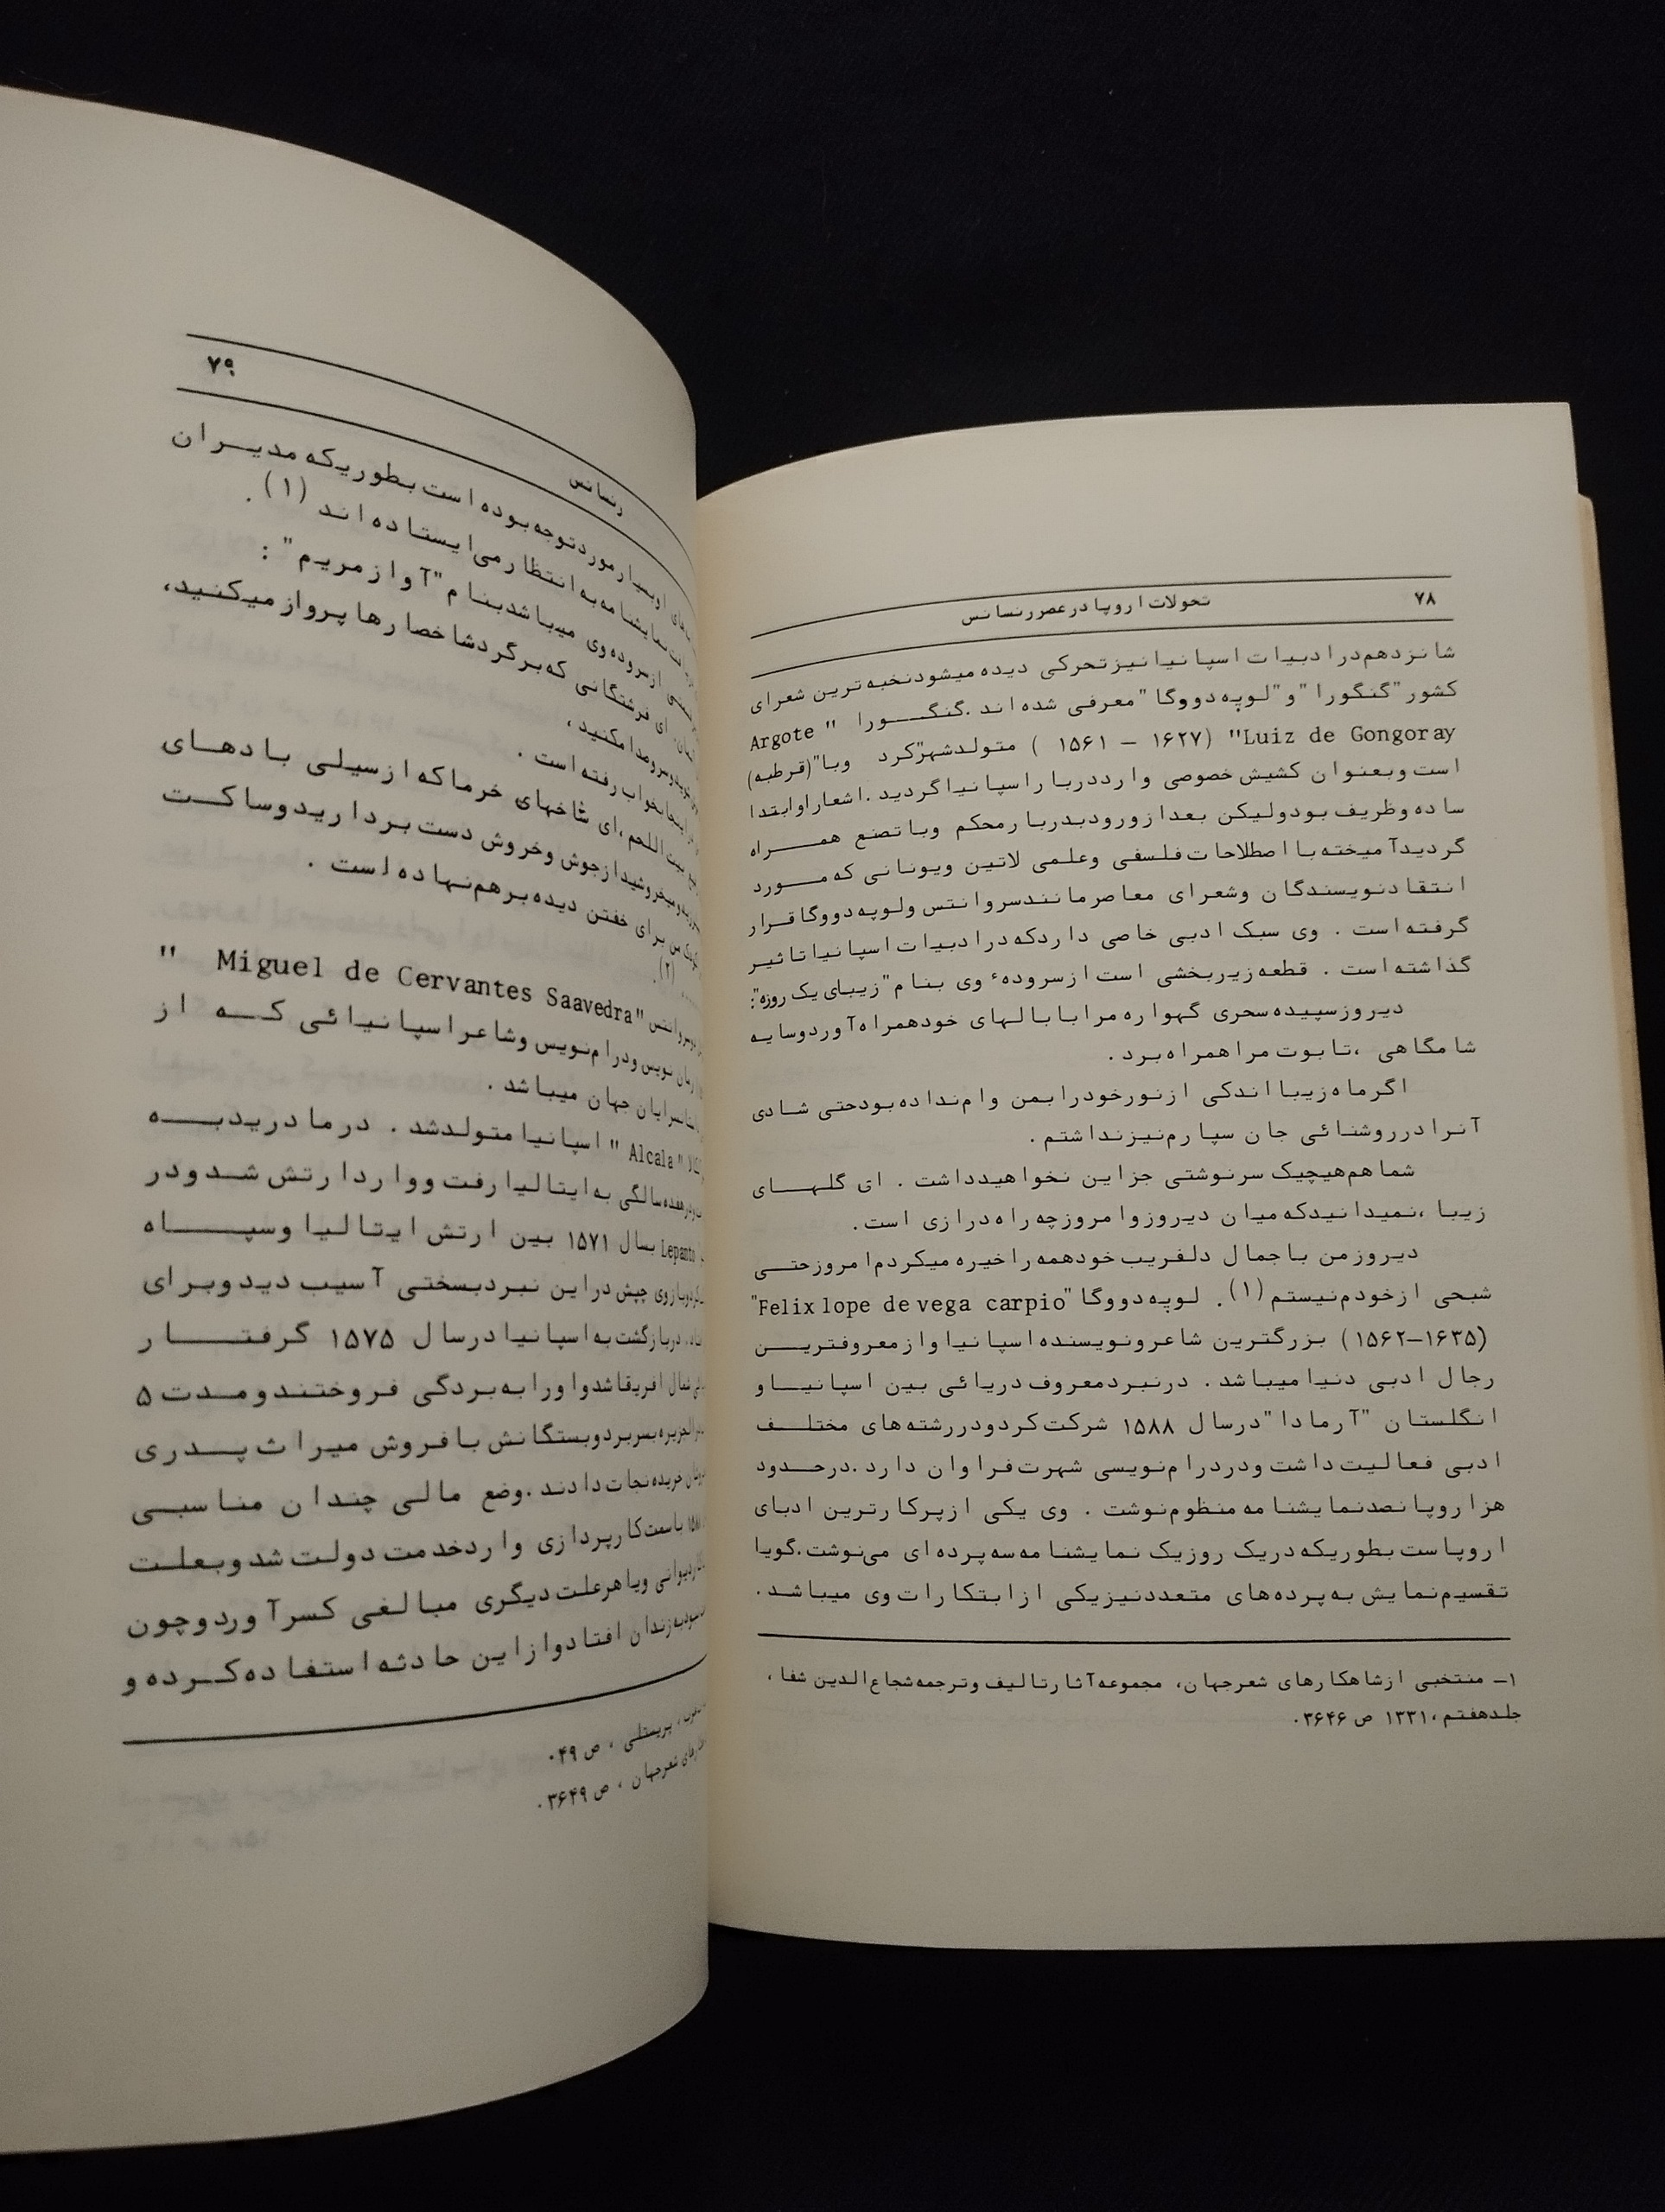 ۷۸
تحولات اروپا در عصر رنسانس
شانزدهم در ادبیات اسپانیا نیز تحرکی دیده میشود نخبه ترین شعرای
کشور "گنگورا" و "لوپه دووگا" معرفی شده اند. گنگورا " Argote
Luiz de Gongoray" (۱۶۲۷ – ۱۵۶۱) متولد شهر "کرد وبا" (قرطبه)
است وبعنوان کشیش خصوصی وارد دربار اسپانیا گردید. اشعار او ابتدا
ساده وظریف بود ولیکن بعد از ورود بدربار محکم وبا تصنع همراه
گردید آمیخته با اصطلاحات فلسفی وعلمی لاتین ویونانی که مورد
انتقاد نویسندگان وشعرای معاصر مانند سروانتس ولوپه دووگا قرار
گرفته است. وی سبک ادبی خاصی دارد که در ادبیات اسپانیا تاثیر
گذاشته است. قطعه زیر بخشی است از سرودهٔ وی بنام "زیبای یک روزه":
دیروز سپیده سحری گهواره مرا با بالهای خود همراه آورد وسایه
شامگاهی، تابوت مرا همراه برد.
اگر ماه زیبا اندکی از نور خود را بمن وام نداده بود حتی شادی
آنرا در روشنائی جان سپارم نیز نداشتم.
شما هم هیچیک سرنوشتی جز این نخواهید داشت. ای گلهای
زیبا، نمیدانید که میان دیروز وامروز چه راه درازی است.
دیروز من با جمال دلفریب خود همه را خیره میکردم امروز حتی
شبحی از خودم نیستم (۱). لوپه دووگا "Felix lope de vega carpio"
(۱۶۳۵–۱۵۶۲) بزرگترین شاعر ونویسنده اسپانیا واز معروفترین
رجال ادبی دنیا میباشد. در نبرد معروف دریائی بین اسپانیا و
انگلستان "آرمادا" در سال ۱۵۸۸ شرکت کرد ودر رشته های مختلف
ادبی فعالیت داشت ودر درام نویسی شهرت فراوان دارد. در حدود
هزار وپانصد نمایشنامه منظوم نوشت. وی یکی از پرکارترین ادبای
اروپاست بطوریکه در یک روز یک نمایشنامه سه پرده ای می نوشت. گویا
تقسیم نمایش به پرده های متعدد نیز یکی از ابتکارات وی میباشد.
۱– منتخبی از شاهکارهای شعر جهان، مجموعه آثار تالیف وترجمه شجاع الدین شفا،
جلد هفتم، ۱۳۳۱ ص ۳۶۴۶.
رنسانس
۷۹
او بسیار مورد توجه بوده است بطوریکه مدیران
نمایشنامه به انتظار می ایستاده اند (۱).
از سروده وی میباشد بنام "آواز مریم" :
ای فرشتگانی که بر گرد شاخصارها پرواز میکنید،
وسر وصدا مکنید،
بخواب رفته است.
بیت اللحم، ای شاخهای خرما که از سیلی بادهای
ومیخروشید از جوش وخروش دست بردارید وساکت
برای خفتن دیده بر هم نهاده است.
(۲).
سروانتس "Miguel de Cervantes Saavedra "
رمان نویس ودرام نویس وشاعر اسپانیائی که از
جهان میباشد.
"Alcala" اسپانیا متولد شد. در مادرید به
سالگی به ایتالیا رفت ووارد ارتش شد ودر
Lepanto بسال ۱۵۷۱ بین ارتش ایتالیا وسپاه
وبازوی چپش در این نبرد بسختی آسیب دید وبرای
در بازگشت به اسپانیا در سال ۱۵۷۵ گرفتار
شمال افریقا شد واو را به بردگی فروختند ومدت ۵
الجزیره بسر برد وبستگانش با فروش میراث پدری
خریده نجات دادند. وضع مالی چندان مناسبی
با سمت کارپردازی وارد خدمت دولت شد وبعلت
دیوانی ویا هر علت دیگری مبالغی کسر آورد وچون
بزندان افتاد واز این حادثه استفاده کرده و
پریستلی، ص ۴۹.
شعر جهان، ص ۳۶۴۹.